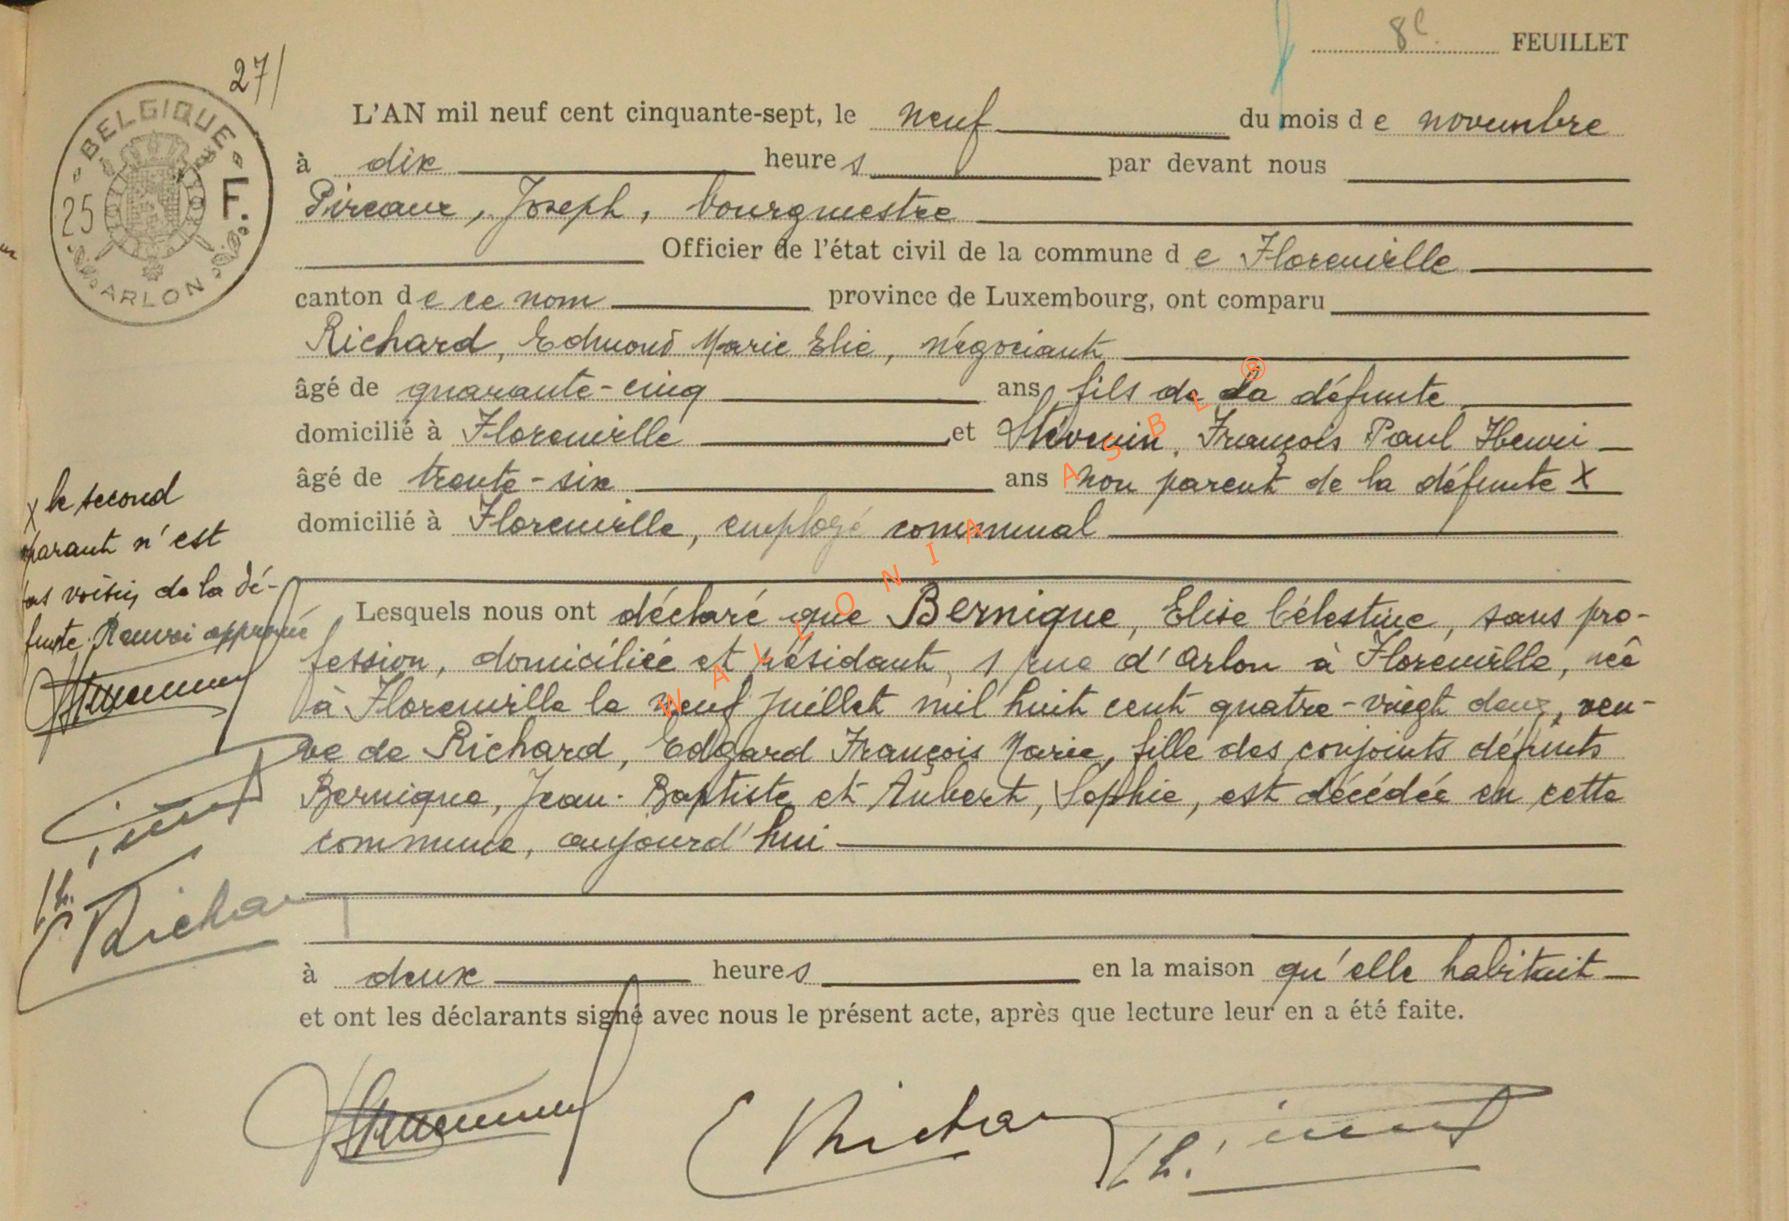 8e FEUILLET
27/
BELGIQUE
25 F.
ARLON
L'AN mil neuf cent cinquante-sept, le neuf du mois de novembre
à dix heures par devant nous
Pireaux, Joseph, bourgmestre
Officier de l'état civil de la commune de Florenville
canton de ce nom province de Luxembourg, ont comparu
Richard, Edmond Marie Elie, négociant
âgé de quarante-cinq ans fils de la défunte
domicilié à Florenville et Thévenin, François Paul Henri
âgé de trente-six ans non parent de la défunte X
domicilié à Florenville, employé communal
X le second
parant n'est
pas voisin de la dé-
funte. Renvoi approuvé
Lesquels nous ont déclaré que Bernique, Elise Célestine, sans pro-
fession, domiciliée et résidant, 1 rue d'Arlon à Florenville, née
à Florenville le neuf juillet mil huit cent quatre-vingt deux, veu-
ve de Richard, Edgard François Marie, fille des conjoints défunts
Bernique, Jean-Baptiste et Aubert, Sophie, est décédée en cette
commune, aujourd'hui
Richard
à deux heures en la maison qu'elle habitait
et ont les déclarants signé avec nous le présent acte, après que lecture leur en a été faite.
E Richard
WALLONIA ASBL ®